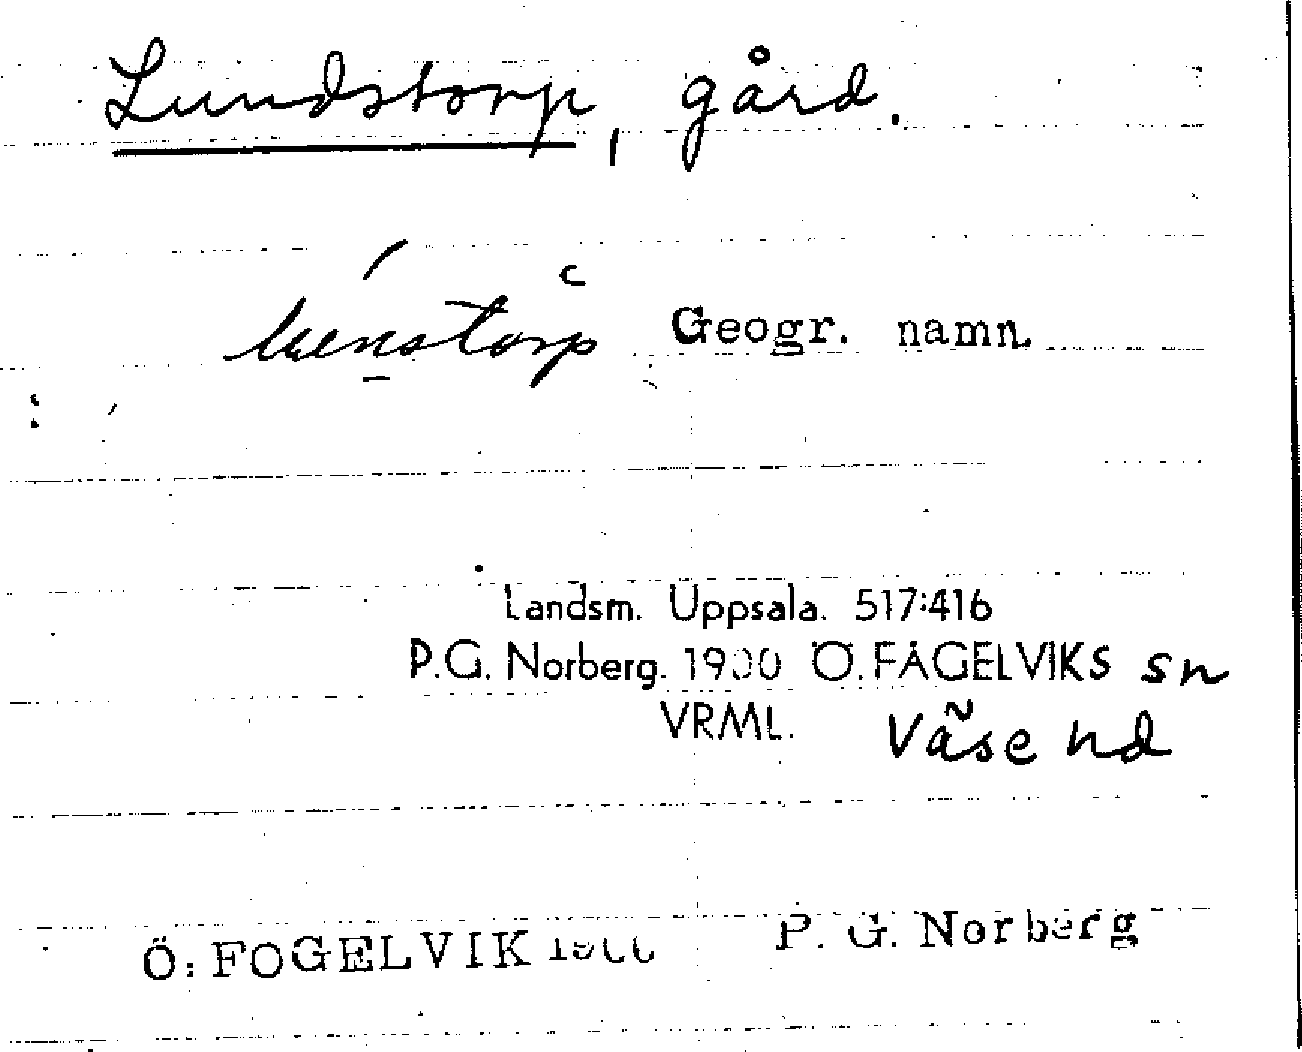 Lundstorp, gård.
Geogr. namn.
Landsm. Uppsala. 517:416
P.G. Norberg. 1900 Ö. FÅGELVIKS sn
VRML. Väse hd
Ö: FOGELVIK 1900 P. G. Norberg